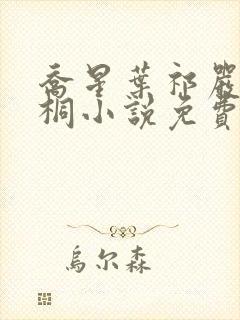 喬星葉祁嚴
桐小說免費
烏尔森